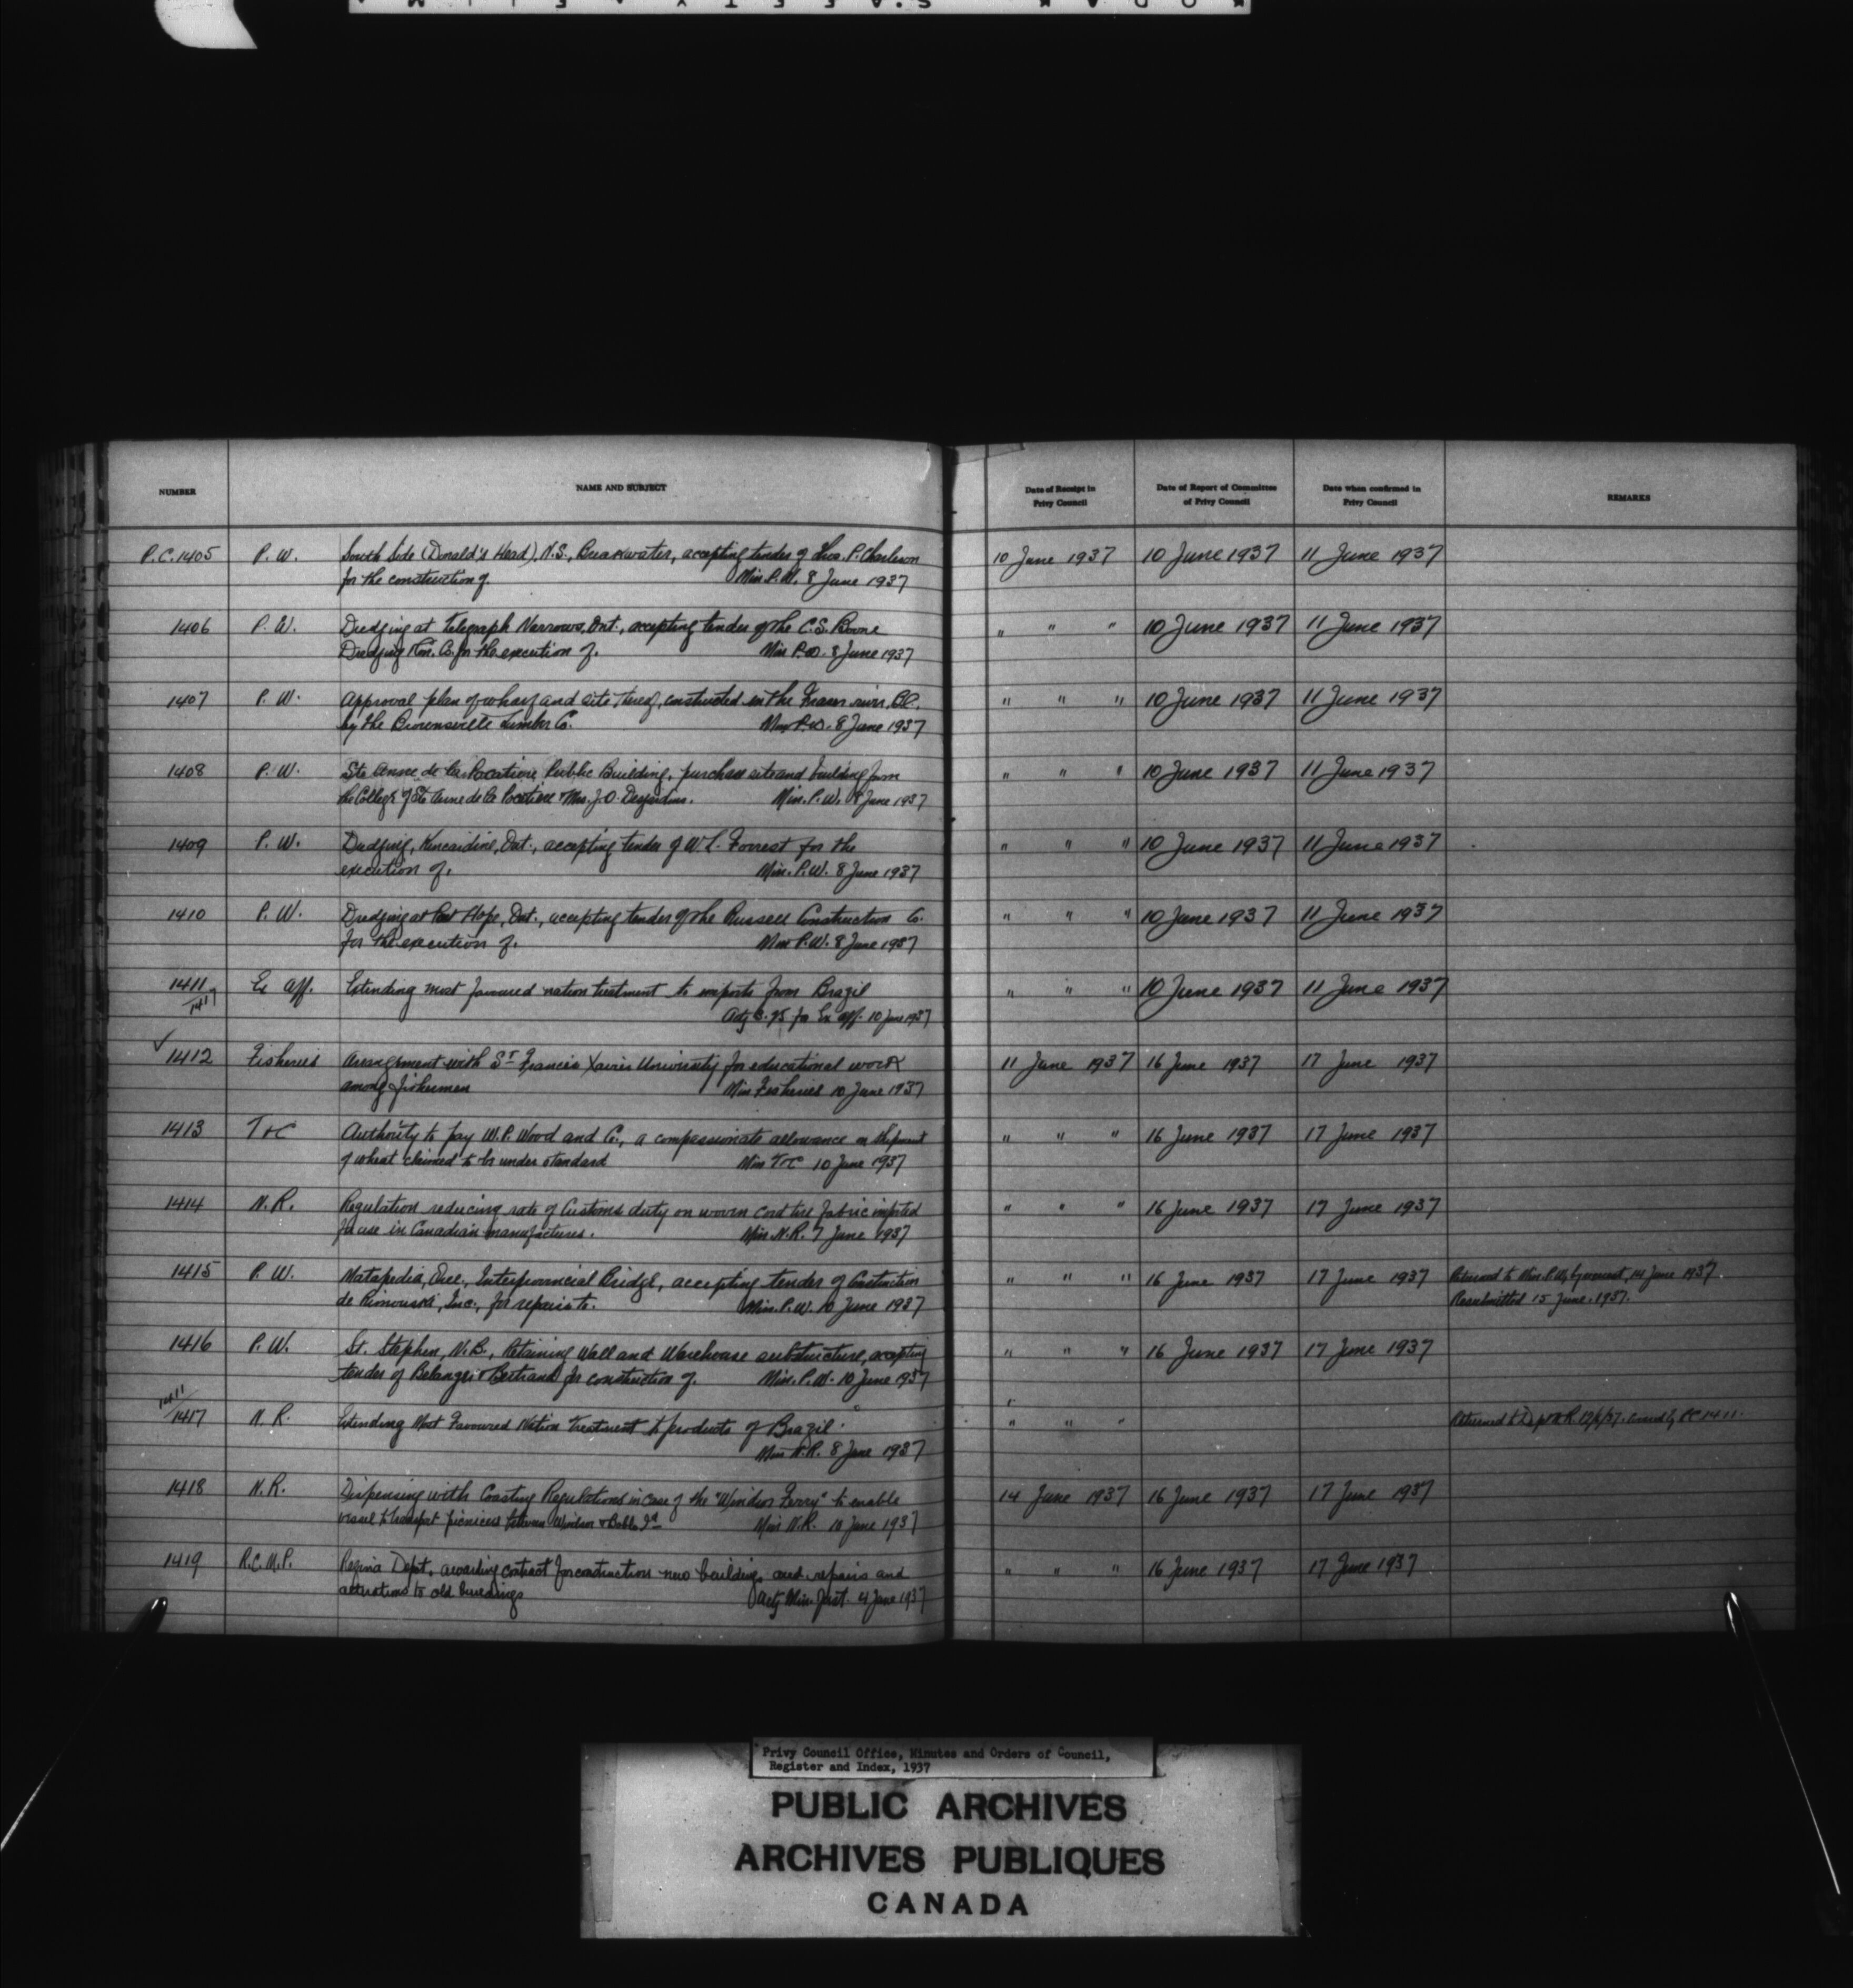 NUMBER NAME AND SUBJECT Date of Receipt in Privy Council Date of Report of Committee of Privy Council Date when confirmed in Privy Council REMARKS
P.C. 1405 P. W. South Side (Donald's Head), N.S., Breakwater, accepting tender of P. Charleson 10 June 1937 10 June 1937 11 June 1937
for the construction of. Min. P.W. 8 June 1937
1406 P. W. Dredging at Telegraph Narrows, Ont., accepting tender of the C.S. Boone " " " 10 June 1937 11 June 1937
Dredging & Con. Co. for the execution of. Min P.W. 8 June 1937
1407 P. W. Approval plan of wharf and site thereof, constructed in the Fraser river, B.C. " " " 10 June 1937 11 June 1937
by the Brownsville Lumber Co. Min P.W. 8 June 1937
1408 P. W. Ste Anne de la Pocatiere, Public Building, purchase site and building from " " " 10 June 1937 11 June 1937
the College of Ste Anne de la Pocatiere & Mrs. J.O. Desjardins. Min. P.W. 8 June 1937
1409 P. W. Dredging, Kincardine, Ont., accepting tender of W.L. Forrest for the " " " 10 June 1937 11 June 1937
execution of. Min. P.W. 8 June 1937
1410 P. W. Dredging at Port Hope, Ont., accepting tender of the Russell Construction Co. " " " 10 June 1937 11 June 1937
for the execution of. Min P.W. 8 June 1937
1411 Ex Aff. Extending most favoured nation treatment to imports from Brazil " " " 10 June 1937 11 June 1937
1417 for Ex Aff. 10 June 1937
✓ 1412 Fisheries Arrangement with St Francis Xavier University for educational work 11 June 1937 16 June 1937 17 June 1937
among fishermen Min Fisheries 10 June 1937
1413 T & C Authority to pay W.P. Wood and Co., a compassionate allowance on shipment " " " 16 June 1937 17 June 1937
of wheat claimed to be under standard Min T & C 10 June 1937
1414 N. R. Regulation reducing rate of Customs duty on woven cord tire fabric imported " " " 16 June 1937 17 June 1937
for use in Canadian manufactures. Min. N.R. 7 June 1937
1415 P. W. Matapedia, Que., Interprovincial Bridge, accepting tender of Construction " " " 16 June 1937 17 June 1937 Returned to Min. P.W. by request, 14 June 1937
de Rimouski, Inc., for repairs to. Min. P.W. 10 June 1937 Resubmitted 15 June. 1937.
1416 P. W. St. Stephen, N.B., Retaining Wall and Warehouse substructure, accepting " " " 16 June 1937 17 June 1937
tender of Belanger & Bertrand for construction of. Min. P.W. 10 June 1937
1411
1417 N. R. Extending Most Favoured Nation Treatment to products of Brazil " " " Returned to Dept N.R. Covered by PC 1411.
Min N.R. 8 June 1937
1418 N. R. Dispensing with Coasting Regulations in case of the "Windsor Ferry" to enable 14 June 1937 16 June 1937 17 June 1937
vessel to transport picnicers between Windsor & Boblo Id Min N.R. 10 June 1937
1419 R.C.M.P. Regina Depot, awarding contract for construction new buildings and repairs and " " " 16 June 1937 17 June 1937
alterations to old buildings Actg Min. Just. 4 June 1937
Privy Council Office, Minutes and Orders of Council,
Register and Index, 1937
PUBLIC ARCHIVES
ARCHIVES PUBLIQUES
CANADA